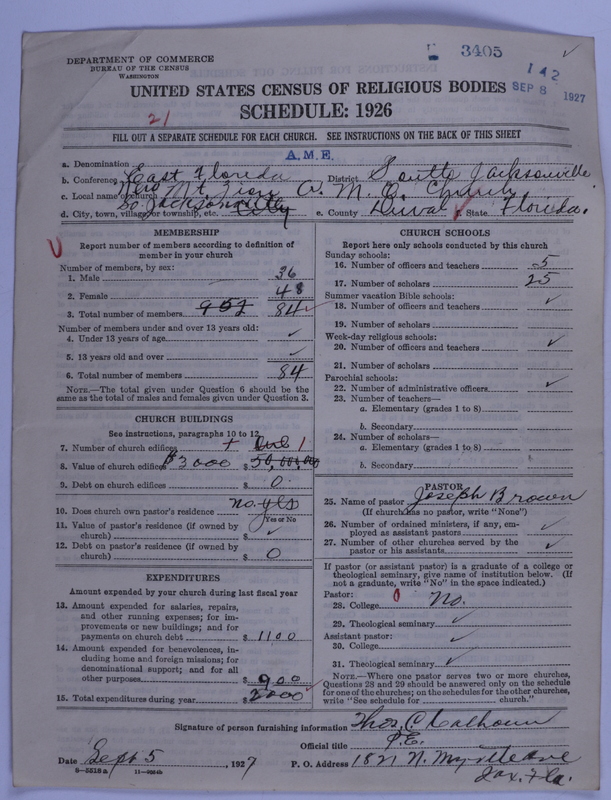 3405
DEPARTMENT OF COMMERCE
BUREAU OF THE CENSUS
WASHINGTON
142
SEP 8 1927
UNITED STATES CENSUS OF RELIGIOUS BODIES
SCHEDULE: 1926
21
FILL OUT A SEPARATE SCHEDULE FOR EACH CHURCH. SEE INSTRUCTIONS ON THE BACK OF THIS SHEET
a. Denomination A.M.E.
b. Conference East Florida District South Jacksonville
c. Local name of church New Mt. Zion A. M. E. Church
d. City, town, village, or township, etc. So. Jacksonville City e. County Duval f. State Florida.
MEMBERSHIP
Report number of members according to definition of
member in your church
Number of members, by sex:
1. Male 36
2. Female 48
3. Total number of members 952 84
Number of members under and over 13 years old:
4. Under 13 years of age
5. 13 years old and over
6. Total number of members 84
NOTE.—The total given under Question 6 should be the
same as the total of males and females given under Question 3.
CHURCH BUILDINGS
See instructions, paragraphs 10 to 12
7. Number of church edifices One 1
8. Value of church edifices $3000 $50,000.00
9. Debt on church edifices $ 0
10. Does church own pastor's residence no. yes
Yes or No
11. Value of pastor's residence (if owned by
church) $
12. Debt on pastor's residence (if owned by
church) $ 0
EXPENDITURES
Amount expended by your church during last fiscal year
13. Amount expended for salaries, repairs,
and other running expenses; for im-
provements or new buildings; and for
payments on church debt $1100
14. Amount expended for benevolences, in-
cluding home and foreign missions; for
denominational support; and for all
other purposes $900
15. Total expenditures during year $2000
CHURCH SCHOOLS
Report here only schools conducted by this church
Sunday schools:
16. Number of officers and teachers 5
17. Number of scholars 25
Summer vacation Bible schools:
18. Number of officers and teachers
19. Number of scholars
Week-day religious schools:
20. Number of officers and teachers
21. Number of scholars
Parochial schools:
22. Number of administrative officers
23. Number of teachers—
a. Elementary (grades 1 to 8)
b. Secondary
24. Number of scholars—
a. Elementary (grades 1 to 8)
b. Secondary
PASTOR
25. Name of pastor Joseph Brown
(If church has no pastor, write "None")
26. Number of ordained ministers, if any, em-
ployed as assistant pastors
27. Number of other churches served by the
pastor or his assistants
If pastor (or assistant pastor) is a graduate of a college or
theological seminary, give name of institution below. (If
not a graduate, write "No" in the space indicated.)
Pastor:
28. College 0 No.
29. Theological seminary
Assistant pastor:
30. College
31. Theological seminary
NOTE.—Where one pastor serves two or more churches,
Questions 28 and 29 should be answered only on the schedule
for one of the churches; on the schedules for the other churches,
write "See schedule for church."
Signature of person furnishing information Thos. C. Calhoun
Official title P.E.
Date Sept 5, 1927 P. O. Address 1821 N. Myrtle Ave
Jax. Fla.